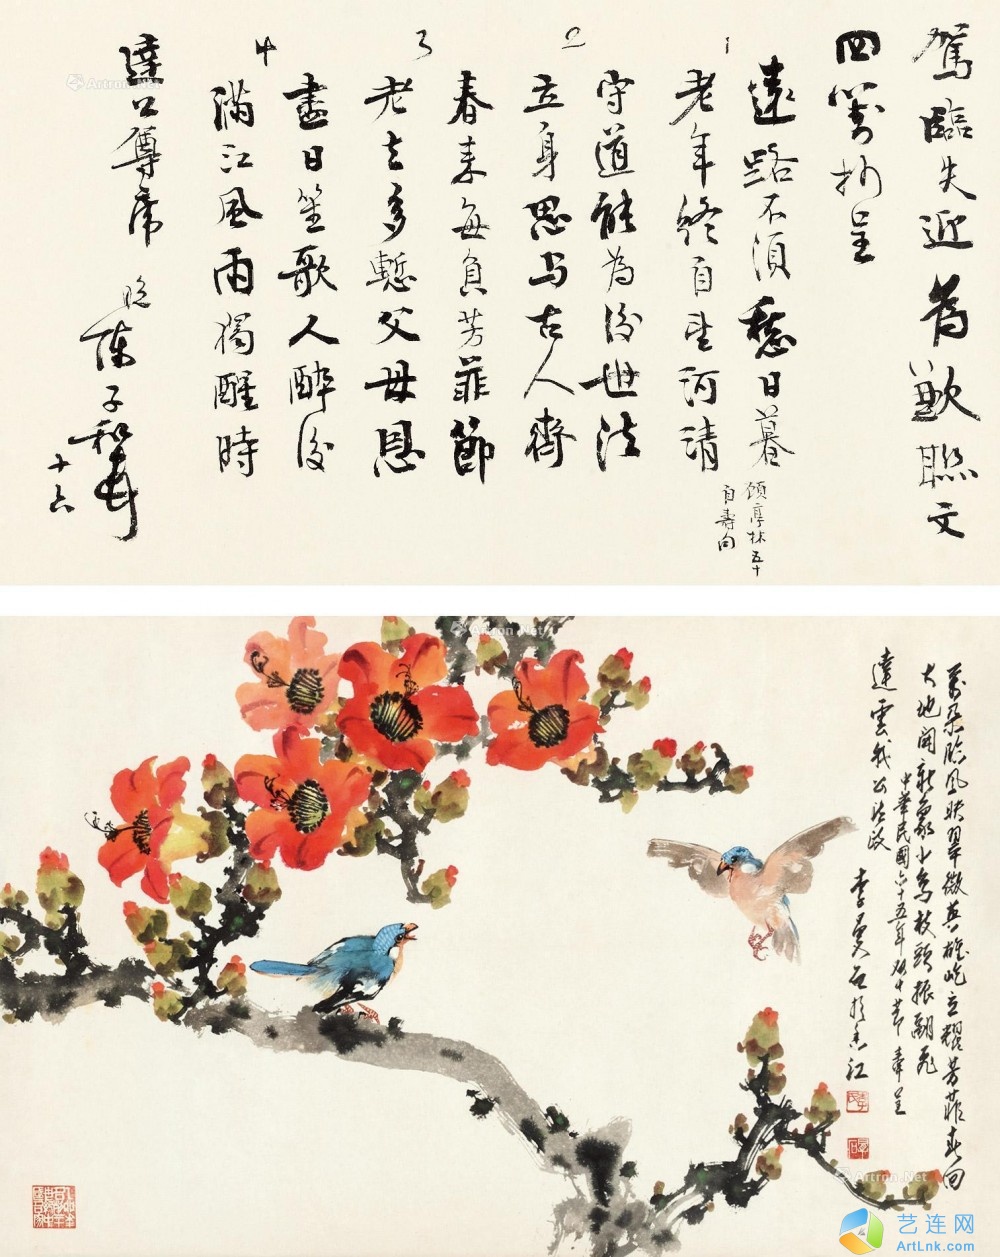 駕臨失迎為歉聯文
四對抄呈
1
遠路不須愁日暮
老年終自望河清
顧亭林五十
自壽句
2
守道能為後世法
立身思與古人齊
3
春来每負芳菲節
老去多慙父母恩
4
盡日笙歌人醉後
滿江風雨獨醒時
達公尊席
陳子和
十六
Artron.Net
Artron.Net
萬朵臨風映翠微英雄屹立耀芳菲春回
大地開新象小鳥枝頭振翮飛
中華民國六十五年双十節奉呈
達雲我公法政
李勇石於香江
Artron.Net
艺连网
ArtLnk.com